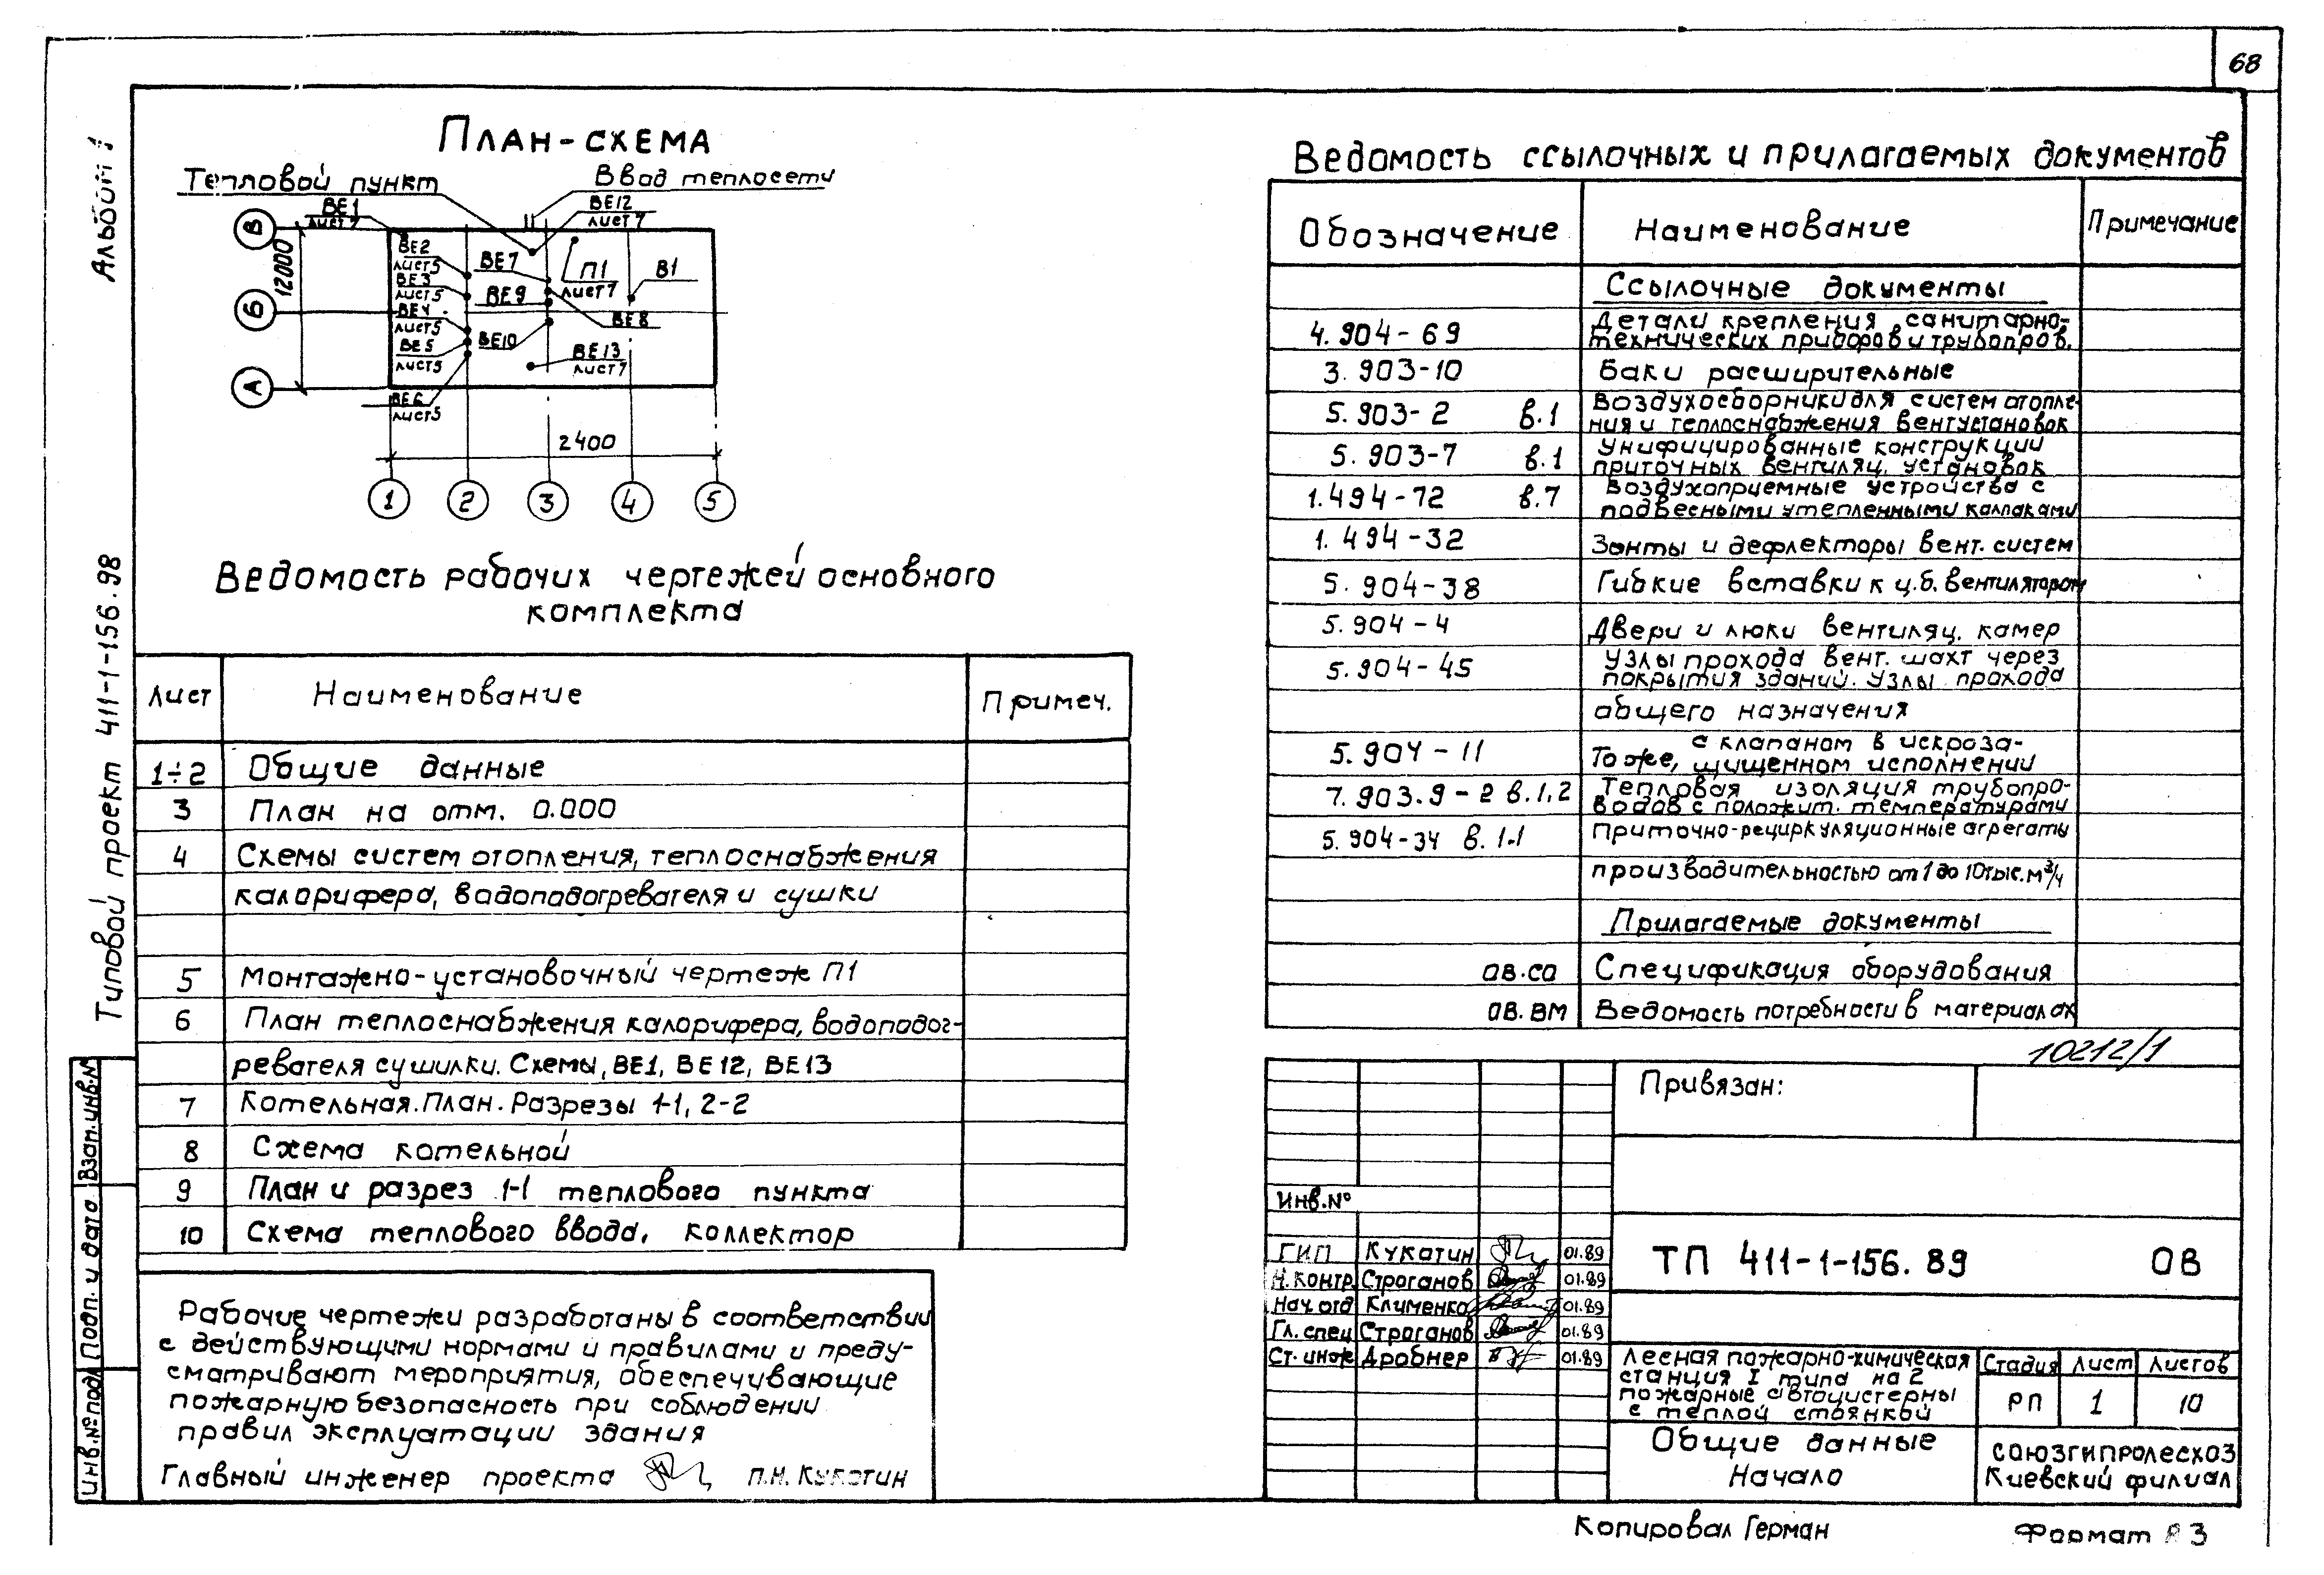 68
Альбом 1
Типовой проект 411-1-156.98
План-схема
Тепловой пункт
Ввод теплосети
ВЕ1
лист 7
ВЕ12
лист 7
В
Б
А
12000
ВЕ2
лист5
ВЕ3
лист5
ВЕ4
лист5
ВЕ5
лист5
ВЕ6
лист5
ВЕ7
ВЕ9
ВЕ10
П1
лист7
В1
ВЕ8
ВЕ13
лист7
2400
1 2 3 4 5
Ведомость рабочих чертежей основного
комплекта
Лист Наименование Примеч.
1÷2 Общие данные
3 План на отм. 0.000
4 Схемы систем отопления, теплоснабжения
калорифера, водоподогревателя и сушки
5 Монтажно-установочный чертеж П1
6 План теплоснабжения калорифера, водоподог-
ревателя сушилки. Схемы, ВЕ1, ВЕ12, ВЕ13
7 Котельная. План. Разрезы 1-1, 2-2
8 Схема котельной
9 План и разрез 1-1 теплового пункта
10 Схема теплового ввода, коллектор
Рабочие чертежи разработаны в соответствии
с действующими нормами и правилами и преду-
сматривают мероприятия, обеспечувающие
пожарную безопасность при соблюдении
правил эксплуатации здания
Главный инженер проекта П.Н. Кукотин
Взап. инв.№
Подп. и дата
Инв.№ подл
Ведомость ссылочных и прилагаемых документов
Обозначение Наименование Примечание
Ссылочные документы
4.904-69 Детали крепления санитарно-
технических приборов и трубопров.
3.903-10 Баки расширительные
5.903-2 в.1 Воздухосборники для систем отопле-
ния и теплоснабжения вентустановок
5.903-7 в.1 Унифицированные конструкции
приточных вентиляц. установок
1.494-72 в.7 Воздухоприемные устройства с
подвесными утепленными колпаками
1.494-32 Зонты и дефлекторы вент. систем
5.904-38 Гибкие вставки к ц.б. вентиляторам
5.904-4 Двери и люки вентиляц. камер
5.904-45 Узлы прохода вент. шахт через
покрытия зданий. Узлы прохода
общего назначения
5.904-11 То же, с клапаном в искроза-
щищенном исполнении
7.903.9-2 в.1,2 Тепловая изоляция трубопро-
водов с положит. температурами
5.904-34 в.1-1 Приточно-рециркуляционные агрегаты
производительностью от 1 до 10 тыс. м³/ч
Прилагаемые документы
ОВ.СО Спецификация оборудования
ОВ.ВМ Ведомость потребности в материалах
10212/1
Привязан:
Инв.№
ГИП Кукотин 01.89
Н.контр Строганов 01.89
Нач.отд Клименко 01.89
Гл.спец Строганов 01.89
Ст.инж Дробнер 01.89
ТП 411-1-156.89 ОВ
Лесная пожарно-химическая
станция I типа на 2
пожарные автоцистерны
с теплой стоянкой
Стадия Лист Листов
РП 1 10
Общие данные
Начало
Союзгипролесхоз
Киевский филиал
Копировал Герман
Формат А3